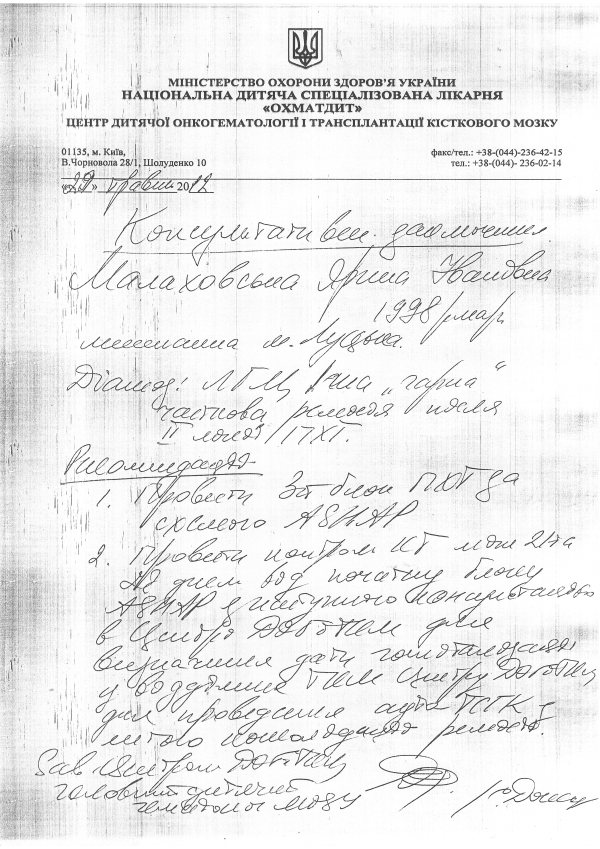 МІНІСТЕРСТВО ОХОРОНИ ЗДОРОВ'Я УКРАЇНИ
НАЦІОНАЛЬНА ДИТЯЧА СПЕЦІАЛІЗОВАНА ЛІКАРНЯ
«ОХМАТДИТ»
ЦЕНТР ДИТЯЧОЇ ОНКОГЕМАТОЛОГІЇ І ТРАНСПЛАНТАЦІЇ КІСТКОВОГО МОЗКУ
01135, м. Київ, факс/тел.: +38-(044)-236-42-15
В.Чорновола 28/1, Шолуденко 10 тел.: +38-(044)- 236-02-14
«29» травня 2012
Консультативн.
Малаховська Ярина Іванівна
1998
мешканка м. Луцька.
Діагноз: ЛГМ,
часткова ремісія після
II ПХТ.
Рекомендації
1. Провести блок ПХТ за
схемою
2. Провести контроль КТ між 21 та
днем від початку блоку
з наступною консультацією
в Центрі для
визначення дати госпіталізації
у відділення ТКМ Центру
для проведення ауто ТСГК з
метою консолідації ремісії.
Зав Центром
Головний дитячий
гематолог МОЗУ